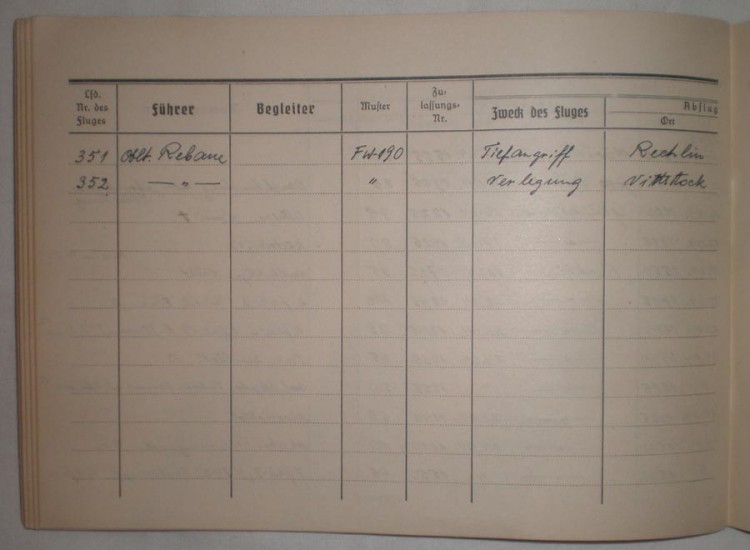 Lfd. Nr. des Fluges Führer Begleiter Muster Zu- lassungs- Nr. Zweck des Fluges Abflug Ort
351 Oblt. Rebane FW-190 Tiefangriff Rechlin
352 — " — " Verlegung Wittstock